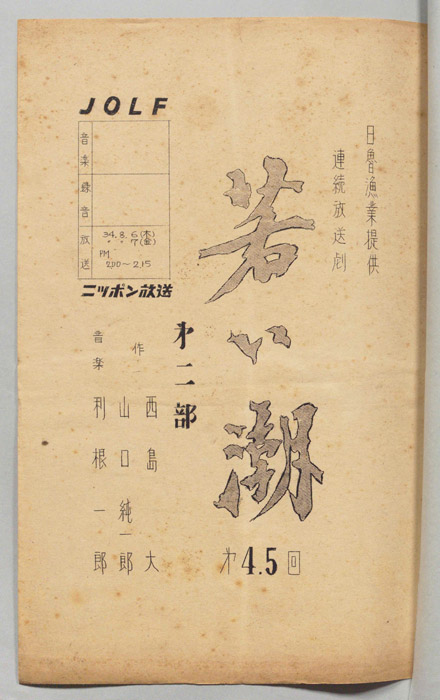 日魯漁業提供
連続放送劇
若い潮
才4.5回
才二部
作
西島大
山口純一郎
音楽
利根一郎
JOLF
音楽
録音
放送
34.8.6(木)
〃〃7(金)
PM
2.00〜2.15
ニッポン放送